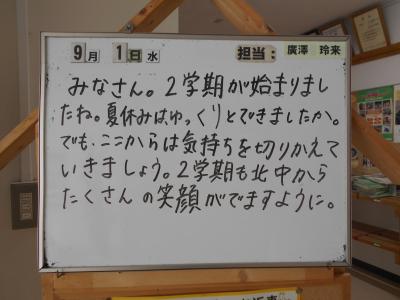 9月 1日水 担当: 廣澤 玲来
みなさん。2学期が始まりまし
たね。夏休みはゆっくりとできましたか。
でも、ここからは気持ちを切りかえて
いきましょう。2学期も北中から
たくさんの笑顔がでますように。